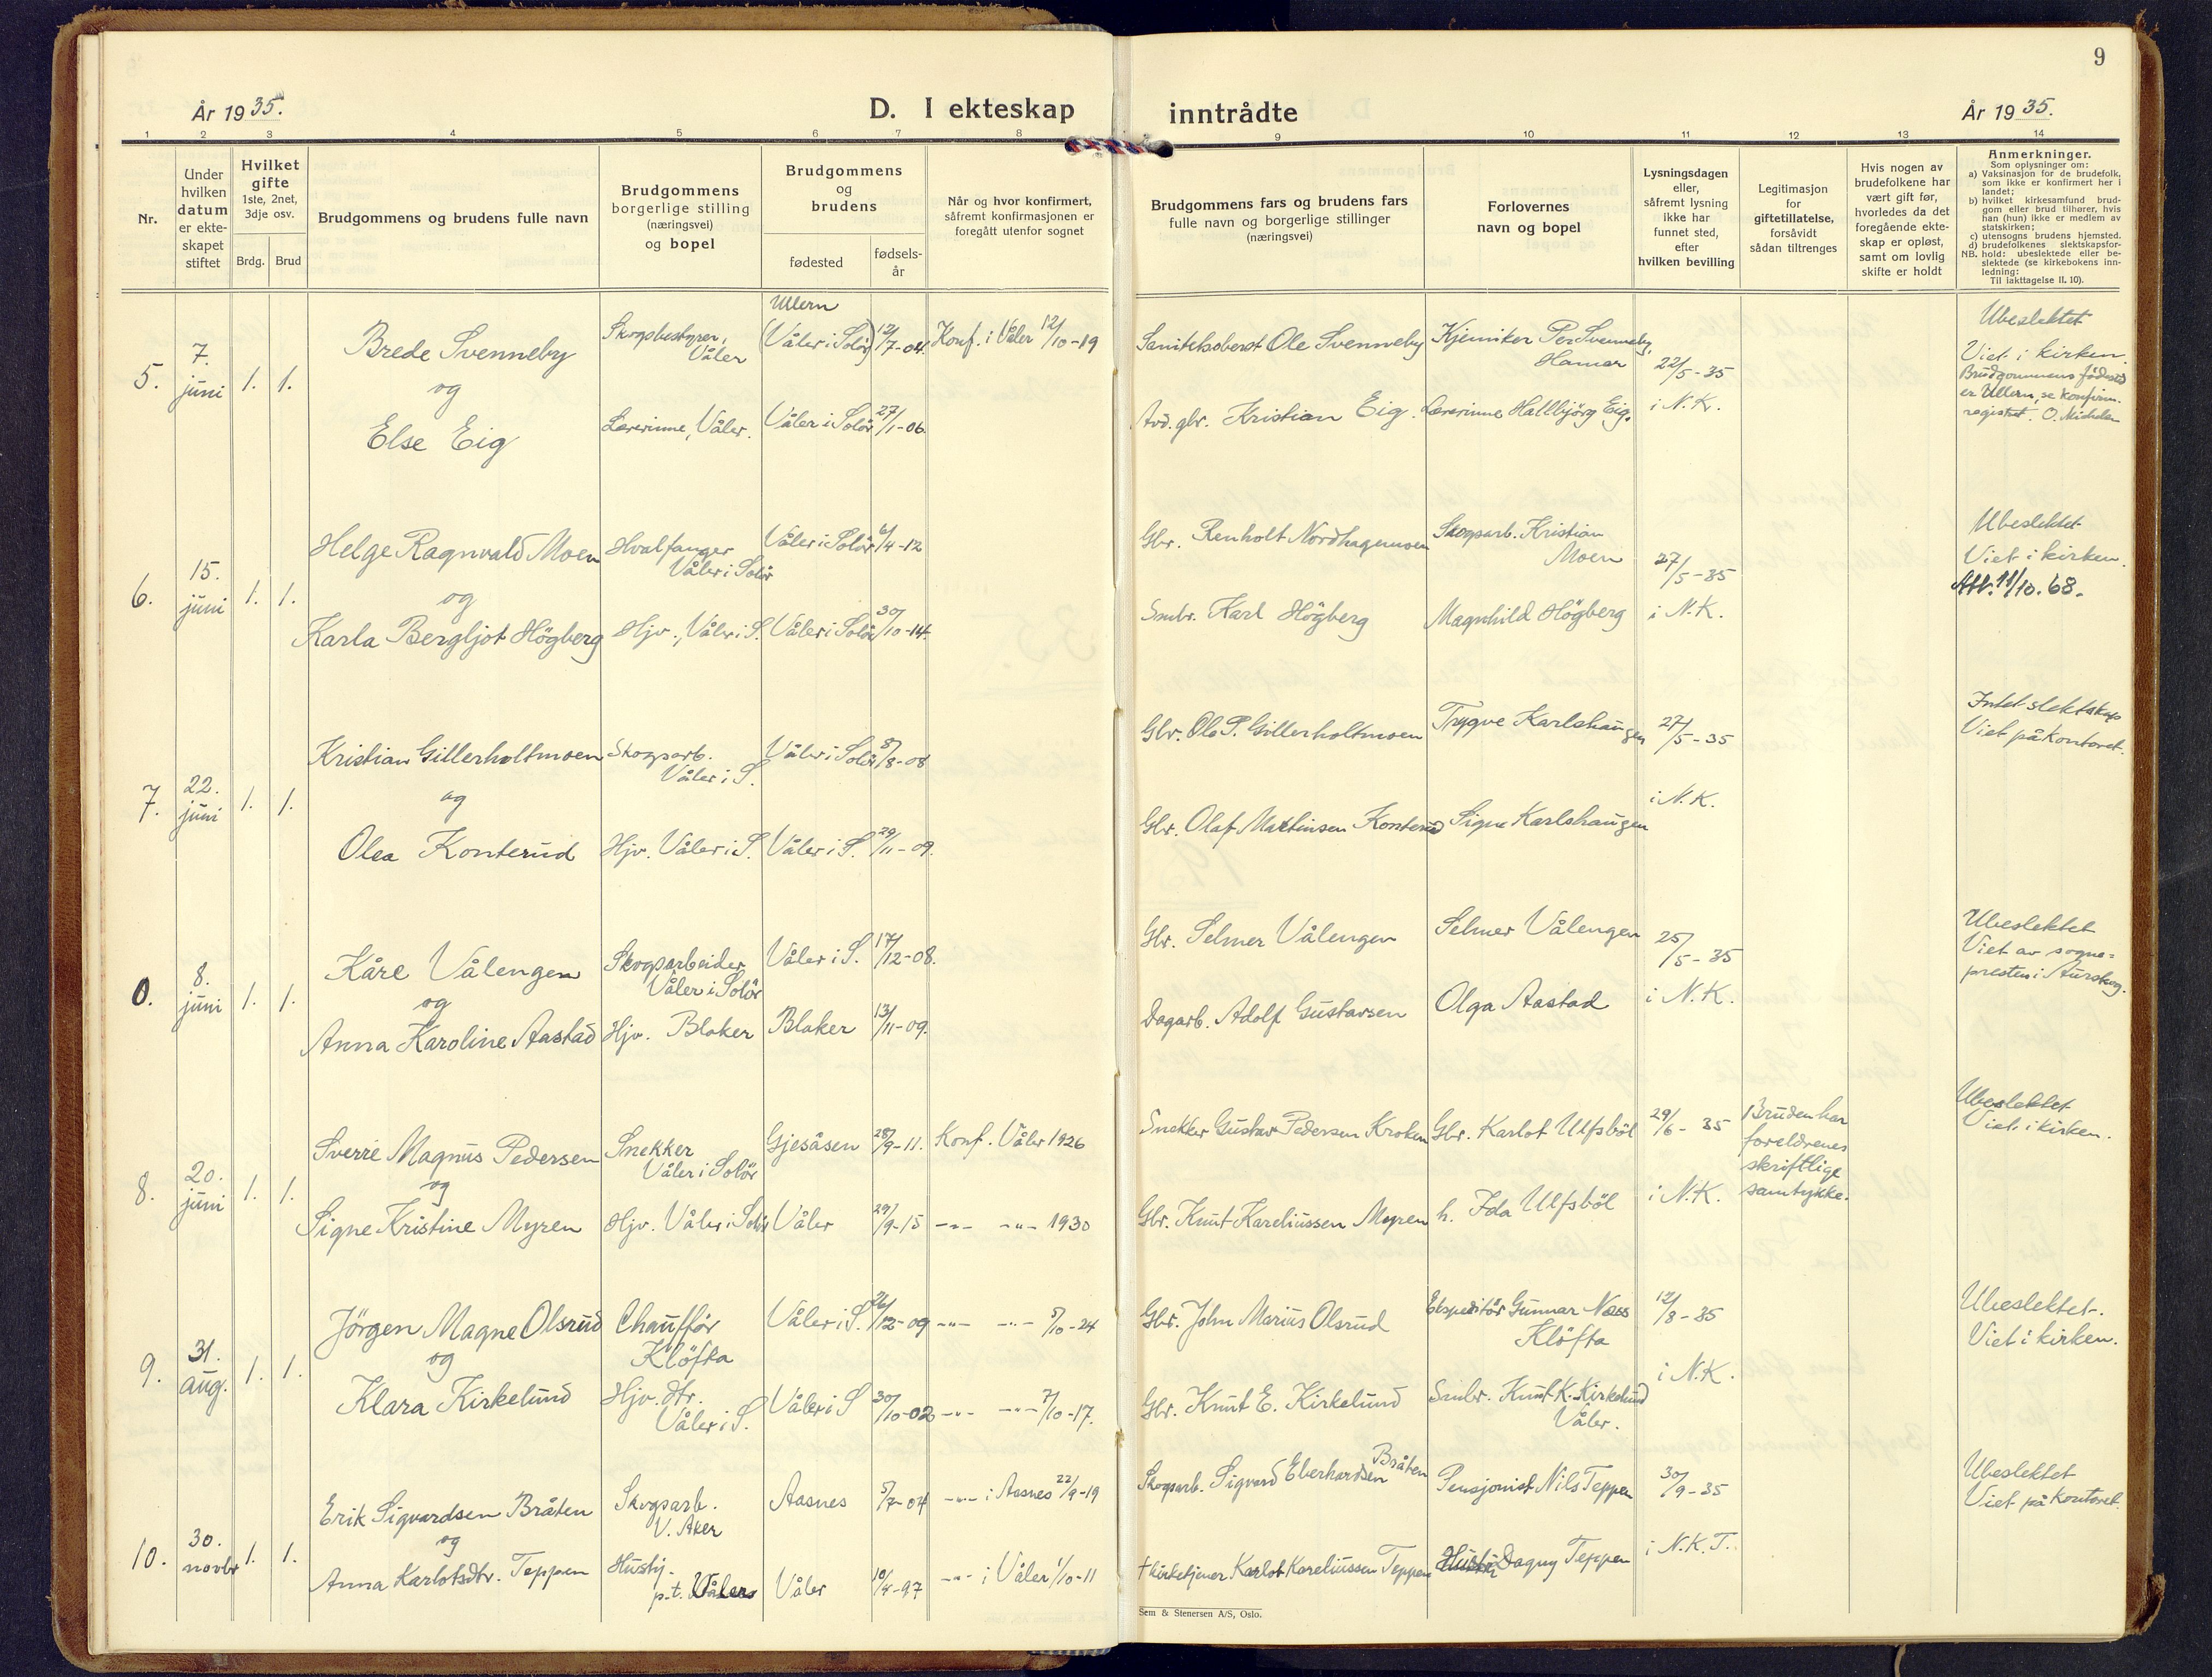 9
År 1935.
D. I ekteskap inntrådte
År 1935.
1 2 3 4 5 6 7 8 9 10 11 12 13 14
Nr.
Under hvilken datum er ekte-skapet stiftet
Hvilket gifte 1ste, 2net, 3dje osv.
Brdg. Brud
Brudgommens og brudens fulle navn
Brudgommens borgerlige stilling (næringsvei) og bopel
Brudgommens og brudens
fødested
fødsels-år
Når og hvor konfirmert, såfremt konfirmasjonen er foregått utenfor sognet
Brudgommens fars og brudens fars fulle navn og borgerlige stillinger (næringsvei)
Forlovernes navn og bopel
Lysningsdagen eller, såfremt lysning ikke har funnet sted, efter hvilken bevilling
Legitimasjon for giftetillatelse, forsåvidt sådan tiltrenges
Hvis nogen av brudefolkene har vært gift før, hvorledes da det foregående ekte-skap er opløst, samt om lovlig skifte er holdt
Anmerkninger.
Som oplysninger om:
a) Vaksinasjon for de brudefolk, som ikke er konfirmert her i landet;
b) hvilket kirkesamfund brud-gom eller brud tilhører, hvis han (hun) ikke er medlem av statskirken;
c) utensogns brudens hjemsted.
d) brudefolkenes slektskapsfor-
NB. hold: ubeslektede eller be-slektede (se kirkebokens inn-ledning:
Til iakttagelse II. 10).
5. 7. juni 1. 1.
Brede Svenneby
og
Else Eig
Skogbestyrer, Våler
Lærerinne, Våler.
Ullern
(Våler i Solör) 12/7-04.
Våler i Solör 27/1-06.
Konf. i Våler 12/10-19
Sanitetsoberst Ole Svenneby
Avd. gbr. Kristian Eig.
Kjemiker Per Svenneby, Hamar
Lærerinne Hallbjörg Eig.
22/5-35
i N.K.
Ubeslektet
Viet i kirken.
Brudgommens fødested
er Ullern, se konfirm.
registret. O. Michelsen
6. 15. juni 1. 1.
Helge Ragnvald Moen
og
Karla Bergljot Högberg
Hvalfanger
Våler i Solör
Hjv., Våler i S.
Våler i Solör 6/4-12
Våler i Solör 30/10-14.
Gbr. Renholt Nordhagenmoen
Smbr. Karl Högberg
Skogsarb. Kristian Moen
Magnhild Högberg
27/5-35
i N.K.
Ubeslektet
Viet i kirken.
Att. 11/10.68.
7. 22. juni 1. 1.
Kristian Gillerholtmoen
og
Olea Konterud
Skogsarb.
Våler i S.
Hjv. Våler i S.
Våler i Solör 8/8-08
Våler i S. 29/11-09.
Gbr. Ole P. Gillerholtmoen
Gbr. Olaf Martinsen Konterud
Trygve Karlshaugen
Signe Karlshaugen
27/5-35
i N.K.
Intet slektskap
Viet på kontoret.
0. 8. juni 1. 1.
Kåre Vålengen
og
Anna Karoline Aastad
Skogsarbeider
Våler i Solör
Hjv. Blaker
Våler i S. 17/12-08.
Blaker 13/11-09.
Gbr. Selmer Vålengen
Dagarb. Adolf Gustavsen
Selmer Vålengen
Olga Aastad
25/5-35
i N.K.
Ubeslektet
Viet av sogne=
presten i Aurskog.
8. 20. juni 1. 1.
Sverre Magnus Pedersen
og
Signe Kristine Myren
Snekker
Våler i Solör
Hjv. Våler i Solör
Gjesåsen 28/9-11.
Våler 29/9-15
Konf. Våler 1926
-"- -"- 1930
Snekker Gustav Pedersen Kroken
Gbr. Knut Kareliussen Myren
Gbr. Karlot Ulfsböl
h. Ida Ulfsböl
29/6-35
i N.K.
Bruden har
foreldrenes
skriftlige
samtykke.
Ubeslektet
Viet i kirken.
9. 31. aug. 1. 1.
Jörgen Magne Olsrud
og
Klara Kirkelund
Chaufför
Klöfta
Hjv. dtr.
Våler i S.
Våler i S. 26/12-09
Våler i S 30/10-02
-"- -"- 5/10-24
-"- -"- 7/10-17.
Gbr. John Marius Olsrud
Gbr. Knut E. Kirkelund
Ekspeditör Gunnar Næss
Klöfta
Smbr. Knut K. Kirkelund
Våler.
12/8-35
i N.K.
Ubeslektet.
Viet i kirken.
10. 30. novbr 1. 1.
Erik Sigvardsen Bråten
og
Anna Karlotsdtr. Teppen
Skogsarb.
V. Aker
Hustj.
p.t. Våler
Aasnes 5/7-04
Våler 10/4-97
-"- i Aasnes 22/9-19
-"- i Våler 1/10-11
Skogsarb. Sigvard Eberhardsen Bråten
† kirketjener Karlot Kareliussen Teppen
Pensjonist Nils Teppen
Hustru Dagny Teppen
30/9-35
i N.K.T.
Ubeslektet
Viet på kontoret.
Sem & Stenersen A/S, Oslo.